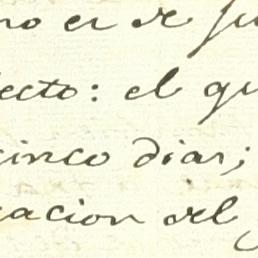 no er de
ecto: el qu
cinco dias;
cacion del